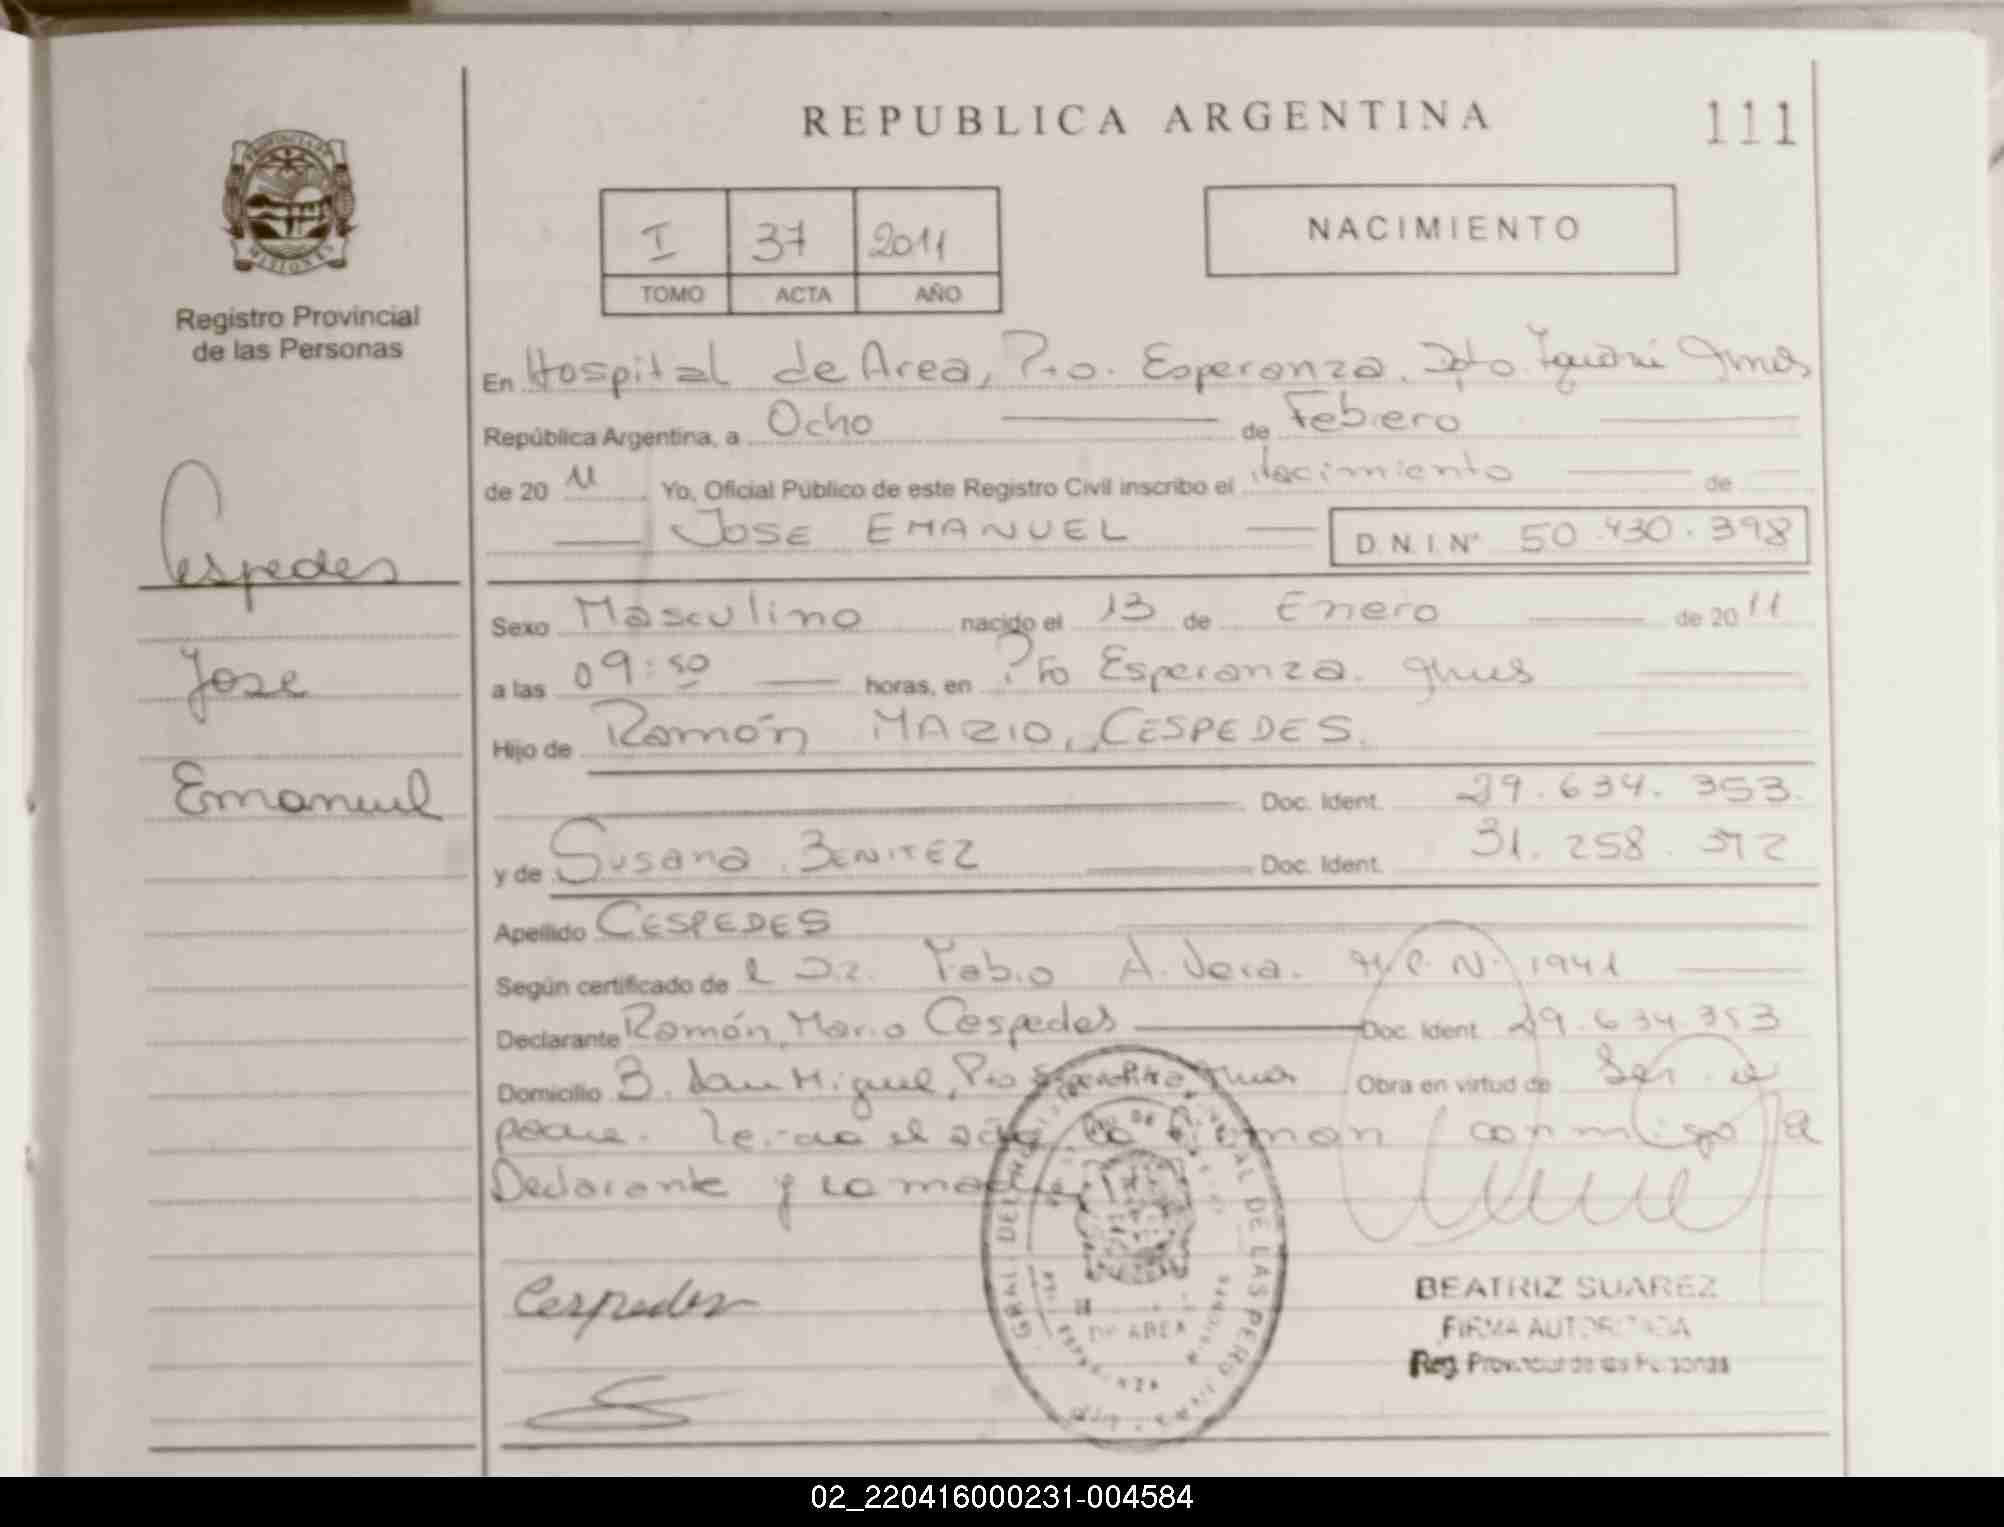 REPUBLICA ARGENTINA
111
PROVINCIA DE
MISIONES
Registro Provincial
de las Personas
I 37 2011
TOMO ACTA AÑO
NACIMIENTO
En Hospital de Area, Pto. Esperanza. Dpto. Iguazú Mnes
República Argentina, a Ocho de Febrero
de 20 11 Yo, Oficial Público de este Registro Civil inscribo el Nacimiento de
JOSE EMANUEL D.N.I.Nº 50.430.398
Cespedes
Jose
Emanuel
Sexo Masculino nacido el 13 de Enero de 20 11
a las 09:50 horas, en Pto Esperanza. Mnes
Hijo de Ramón MARIO, CESPEDES.
Doc. Ident. 29.634.353.
y de Susana BENITEZ Doc. Ident. 31.258.372
Apellido CESPEDES
Según certificado de l Dr. Fabio A. Vera. M.P.Nº 1941
Declarante Ramón, Mario Cespedes Doc. Ident. 29.634.353
Domicilio B. San Miguel, Pto Esperanza Mnes Obra en virtud de Ser el
padre. Leida el acta la firman conmigo el
Declarante y la madre
Cespedes
DE LAS PERS
DE AREA
BEATRIZ SUAREZ
FIRMA AUTORIZADA
Reg. Provincial de las Personas
02_220416000231-004584